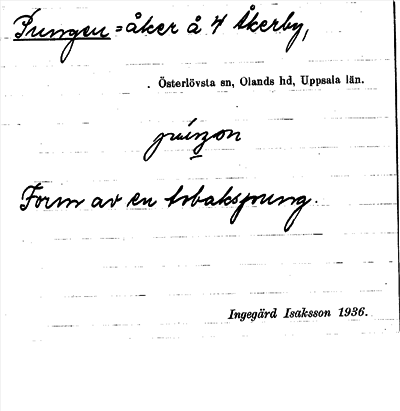 Pungen = åker å 4 Åkerby,
. Österlövsta sn, Olands hd, Uppsala län.
Form av en tobakspung.
Ingegärd Isaksson 1936.